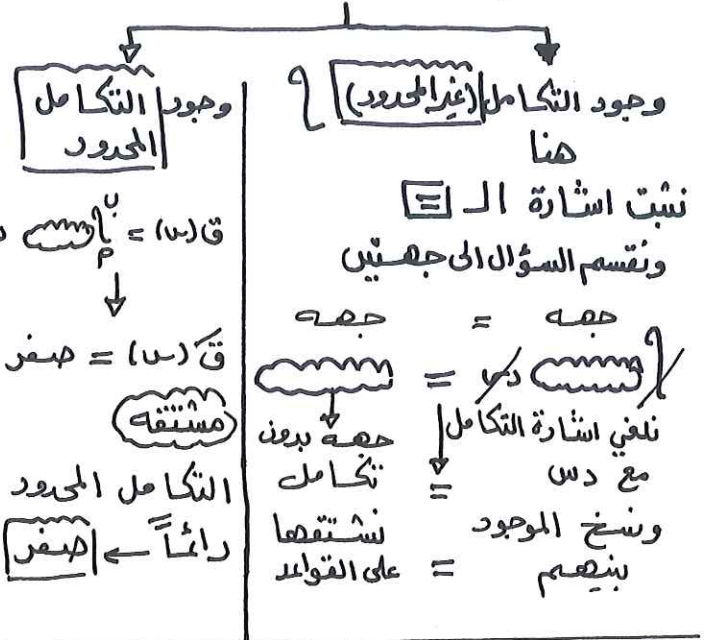 وجود التكامل (غير المحدود) ∫
هنا
نثبت اشارة الـ =
ونقسم السؤال الى جهتين
جهه = جهه
∫ دس =
نلغي اشارة التكامل
مع دس
وننسخ الموجود
بينهم
=
جهه بدون
تكامل
نشتقها
على القواعد
=
وجود التكامل
المحدود
ق(س) = ∫
ب
م
قَ(س) = صفر
مشتقه
التكامل المحدود
دائماً ← صفر